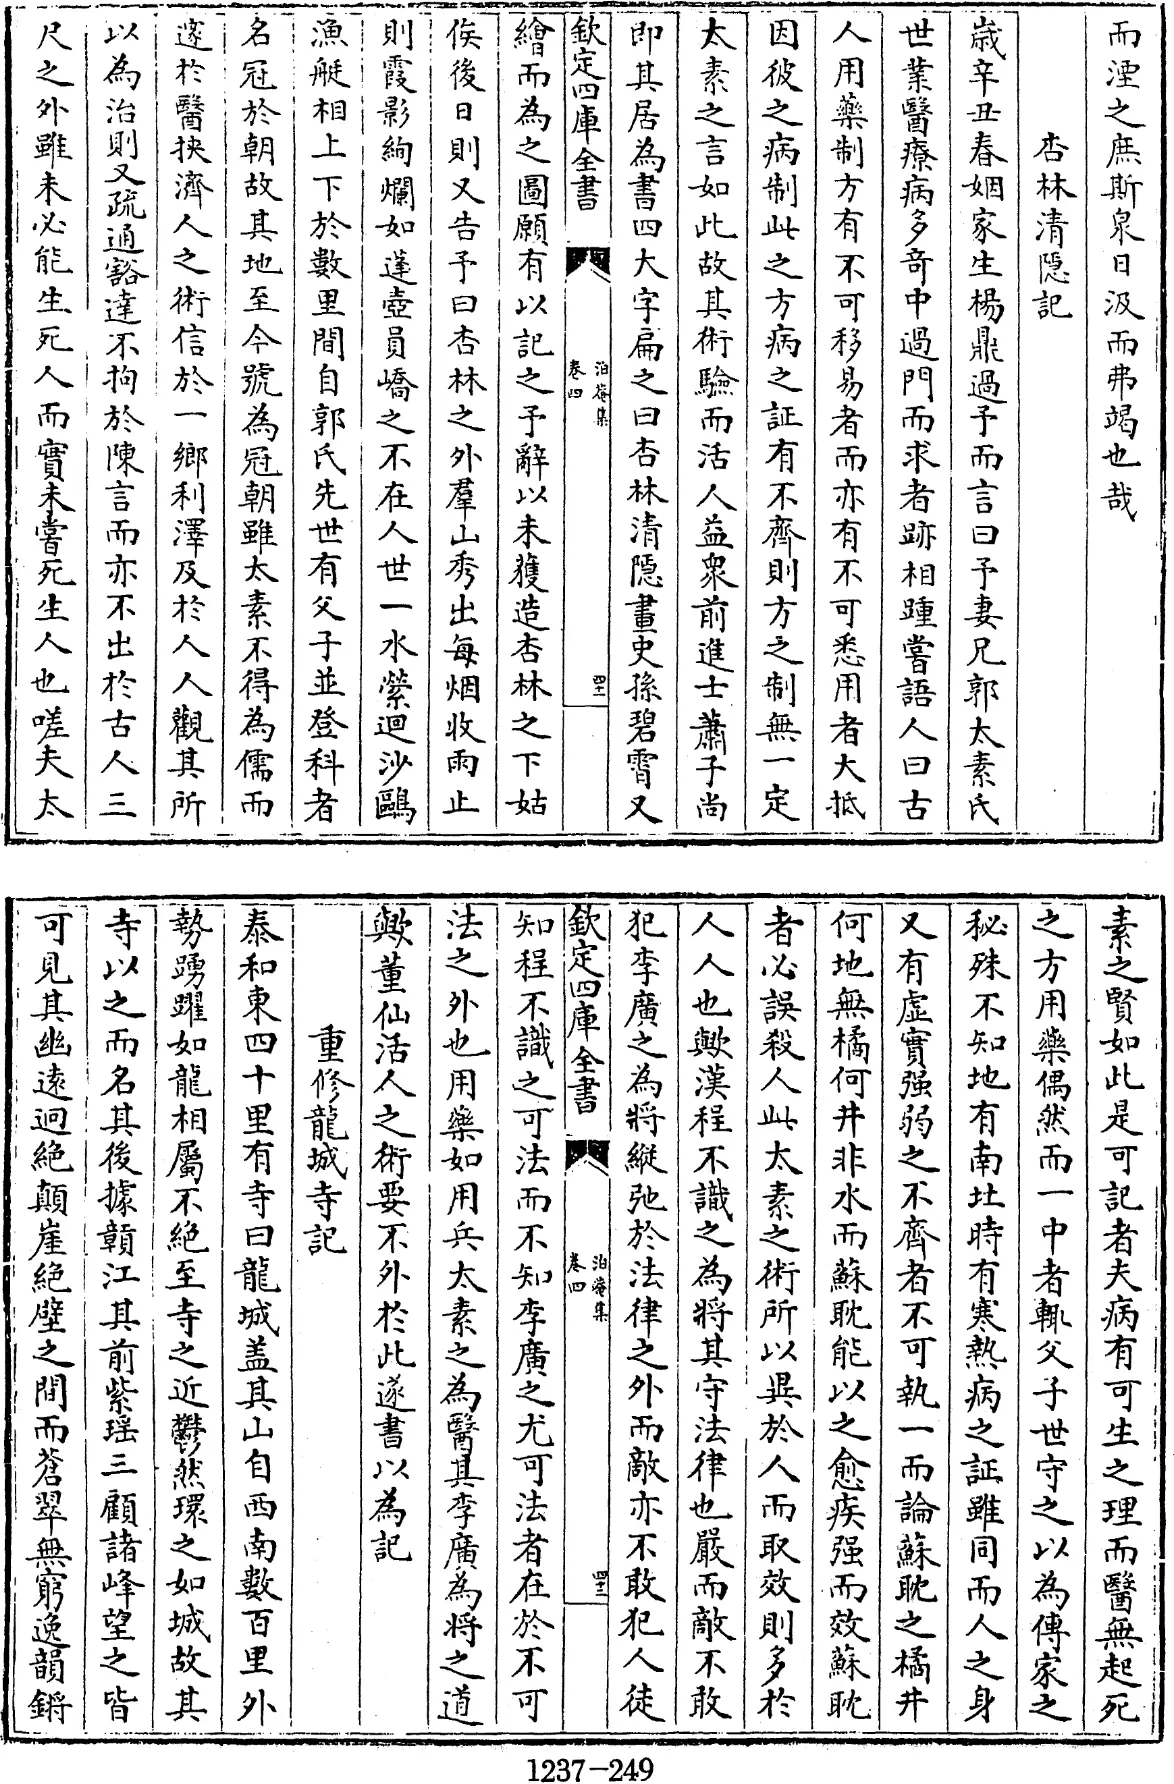 而湮之庶斯泉日汲而弗竭也哉
杏林清隠記
歳辛丑春姻家生楊鼎過予而言曰予妻兄郭太素氏
世業醫療病多竒中過門而求者跡相踵嘗語人曰古
人用藥制方有不可移易者而亦有不可悉用者大抵
因彼之病制此之方病之証有不齊則方之制無一定
太素之言如此故其術驗而活人益衆前進士蕭子尚
即其居為書四大字扁之曰杏林清隠畫史孫碧霄又
欽定四庫全書
泊菴集
卷四
四十一
繪而為之圖願有以記之予辭以未獲造杏林之下姑
俟後日則又告予曰杏林之外羣山秀出每烟收雨止
則霞影絢爛如蓬壺員嶠之不在人世一水縈迴沙鷗
漁艇相上下於數里間自郭氏先世有父子並登科者
名冠於朝故其地至今號為冠朝雖太素不得為儒而
邃於醫挾濟人之術信於一鄉利澤及於人人觀其所
以為治則又疏通豁達不拘於陳言而亦不出於古人三
尺之外雖未必能生死人而實未嘗死生人也嗟夫太
素之賢如此是可記者夫病有可生之理而醫無起死
之方用藥偶然而一中者輒父子世守之以為傳家之
秘殊不知地有南北時有寒熱病之証雖同而人之身
又有虛實强弱之不齊者不可執一而論蘇耽之橘井
何地無橘何井非水而蘇耽能以之愈疾强而效蘇耽
者必誤殺人此太素之術所以異於人而取效則多於
人人也歟漢程不識之為將其守法律也嚴而敵不敢
犯李廣之為將縱弛於法律之外而敵亦不敢犯人徒
欽定四庫全書
泊菴集
卷四
四十二
知程不識之可法而不知李廣之尤可法者在於不可
法之外也用藥如用兵太素之為醫其李廣為將之道
歟董仙活人之術要不外於此遂書以為記
重修龍城寺記
泰和東四十里有寺曰龍城盖其山自西南數百里外
勢踴躍如龍相屬不絶至寺之近鬱然環之如城故其
寺以之而名其後據贛江其前紫瑶三顧諸峰望之皆
可見其幽遠迥絶顛崖絶壁之間而蒼翠無窮逸韻鏘
1237-249